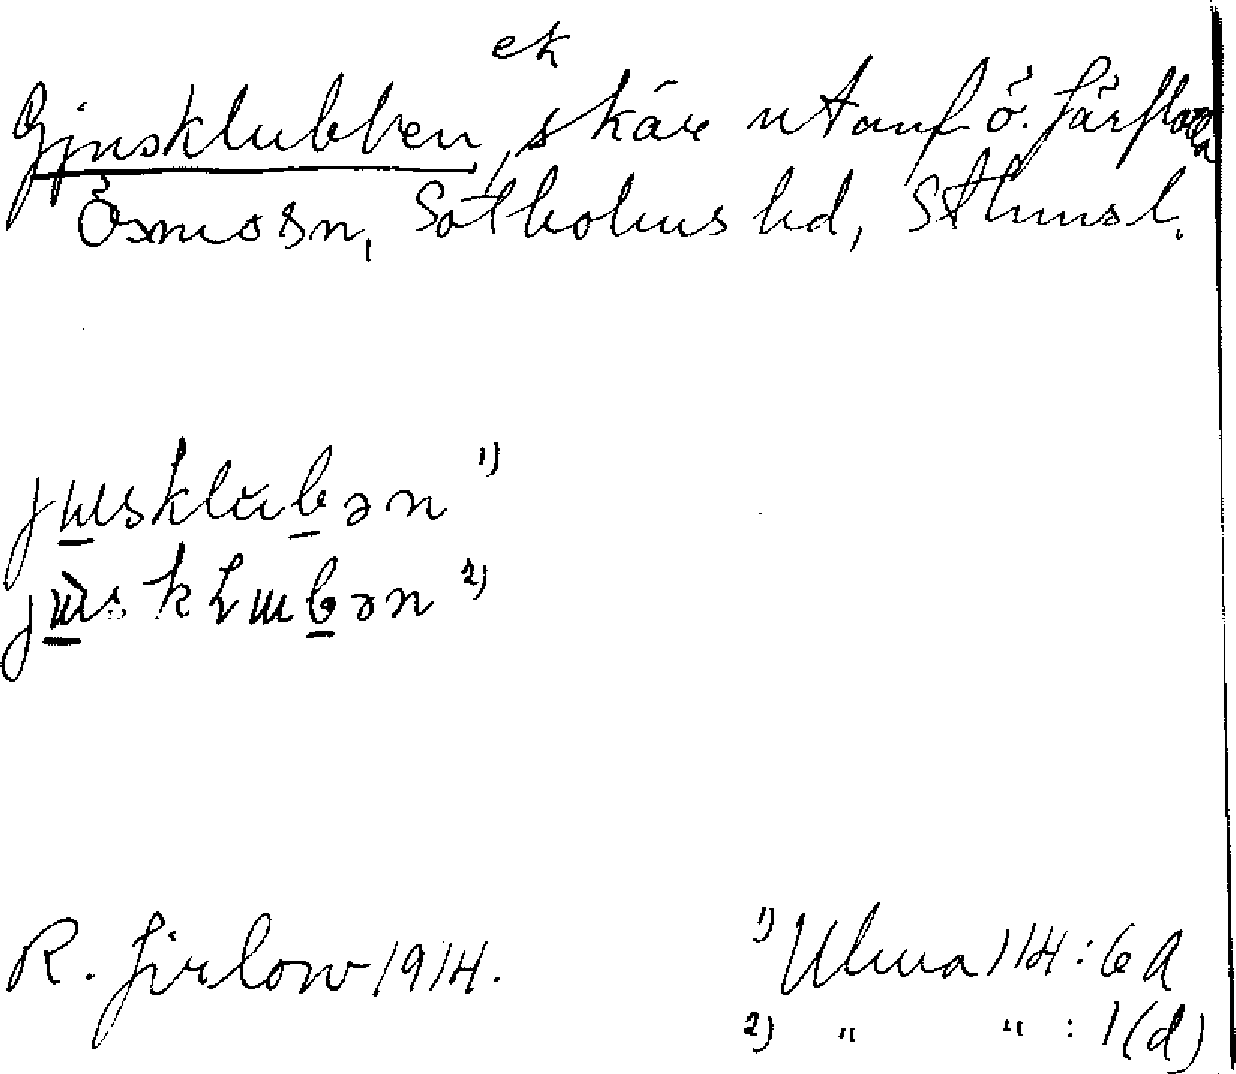 ek
Gjusklubben, skär utanf ö. Järflotta
Ösmo sn, Sotholms hd, Sthms l.
jɯsklubən 1)
jɯskLɯbən 2)
R. Jirlow 1914.
1) Ulma 114:6 A
2) " " : 1(d)